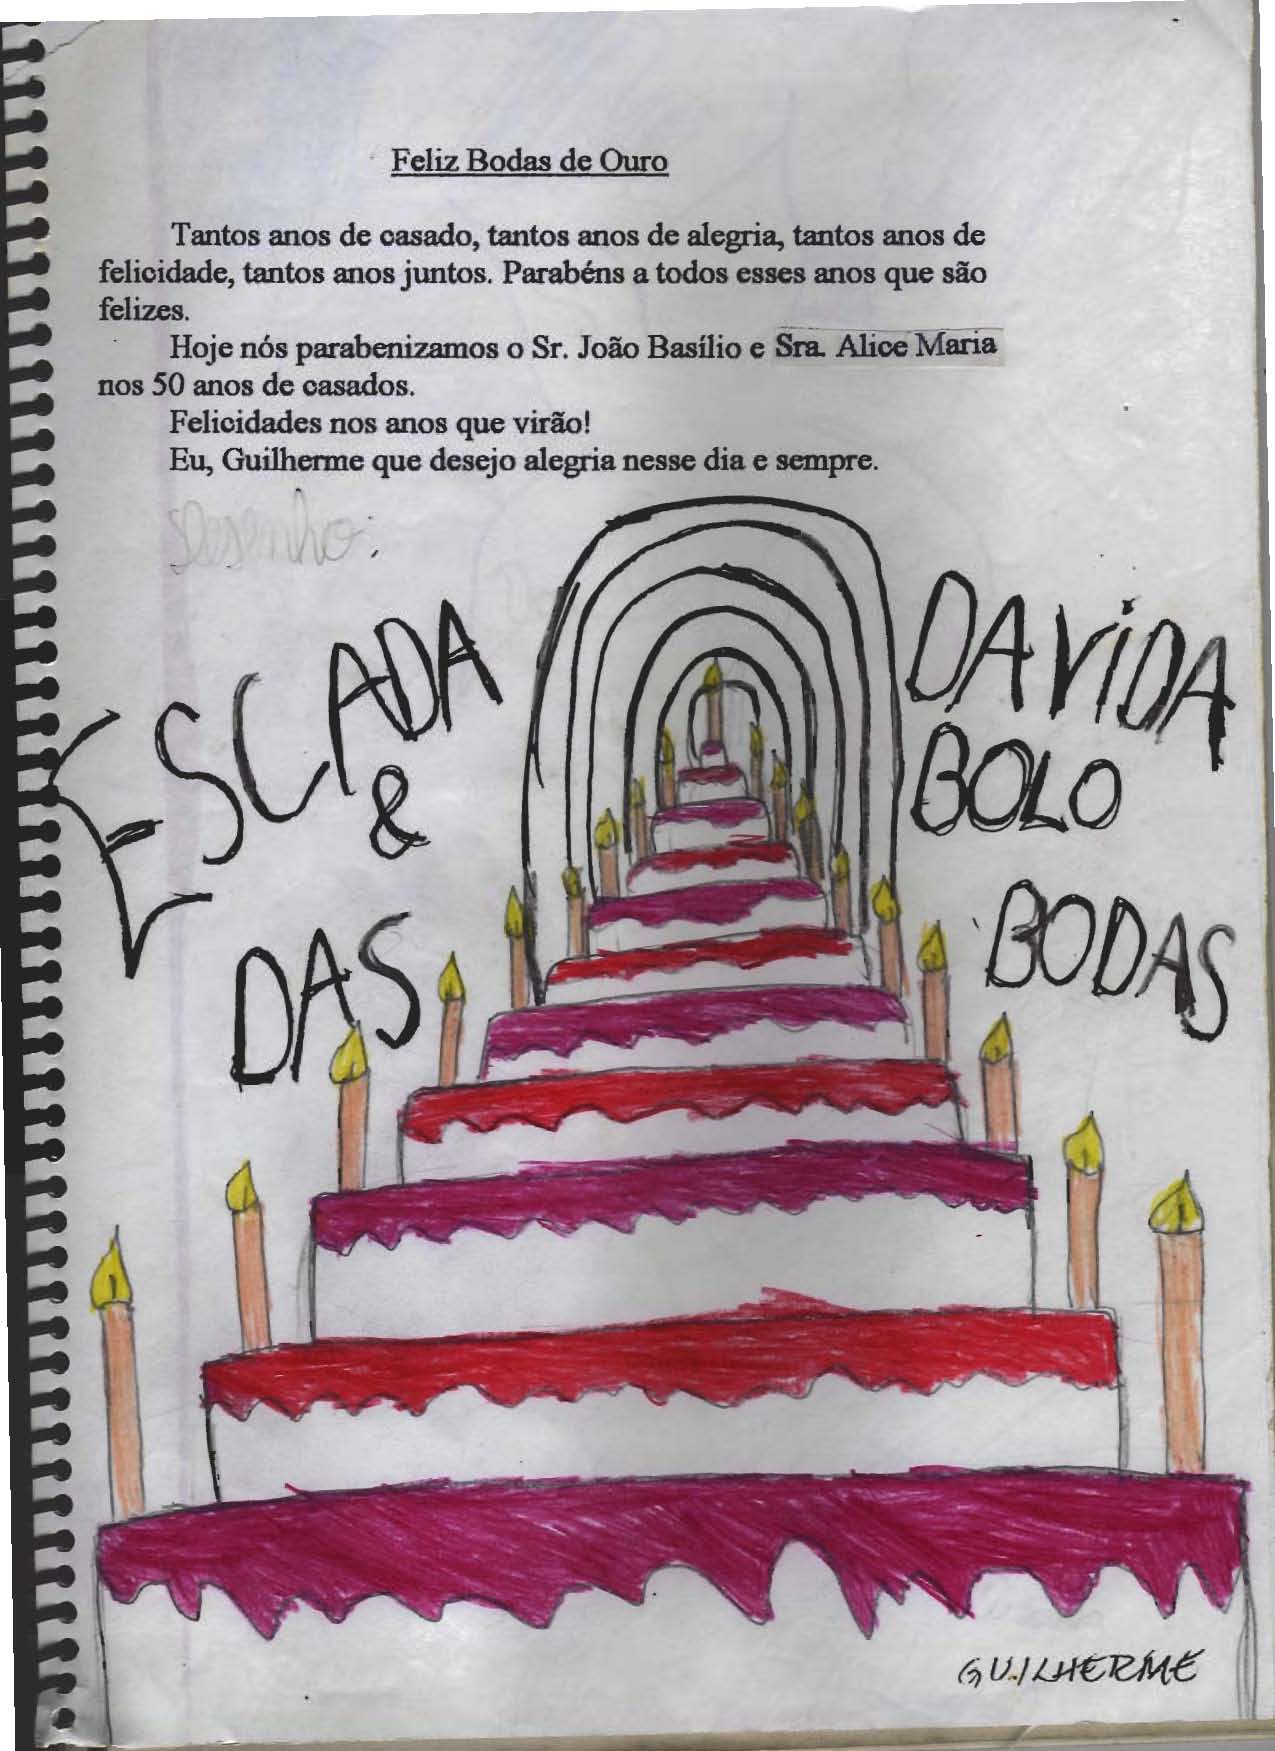 Feliz Bodas de Ouro
Tantos anos de casado, tantos anos de alegria, tantos anos de
felicidade, tantos anos juntos. Parabéns a todos esses anos que são
felizes.
Hoje nós parabenizamos o Sr. João Basílio e Sra. Alice Maria
nos 50 anos de casados.
Felicidades nos anos que virão!
Eu, Guilherme que desejo alegria nesse dia e sempre.
Desenho:
ESCADA DA VIDA
& BOLO
DAS BODAS
GUILHERME